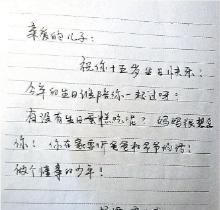 亲爱的儿子:
祝你十五岁生日快乐!
今年的生日谁陪你一起过呀?
有没有生日蛋糕吃呢?妈妈很想
你!你在家要听爸爸和爷爷的话!
做个懂事的少年!